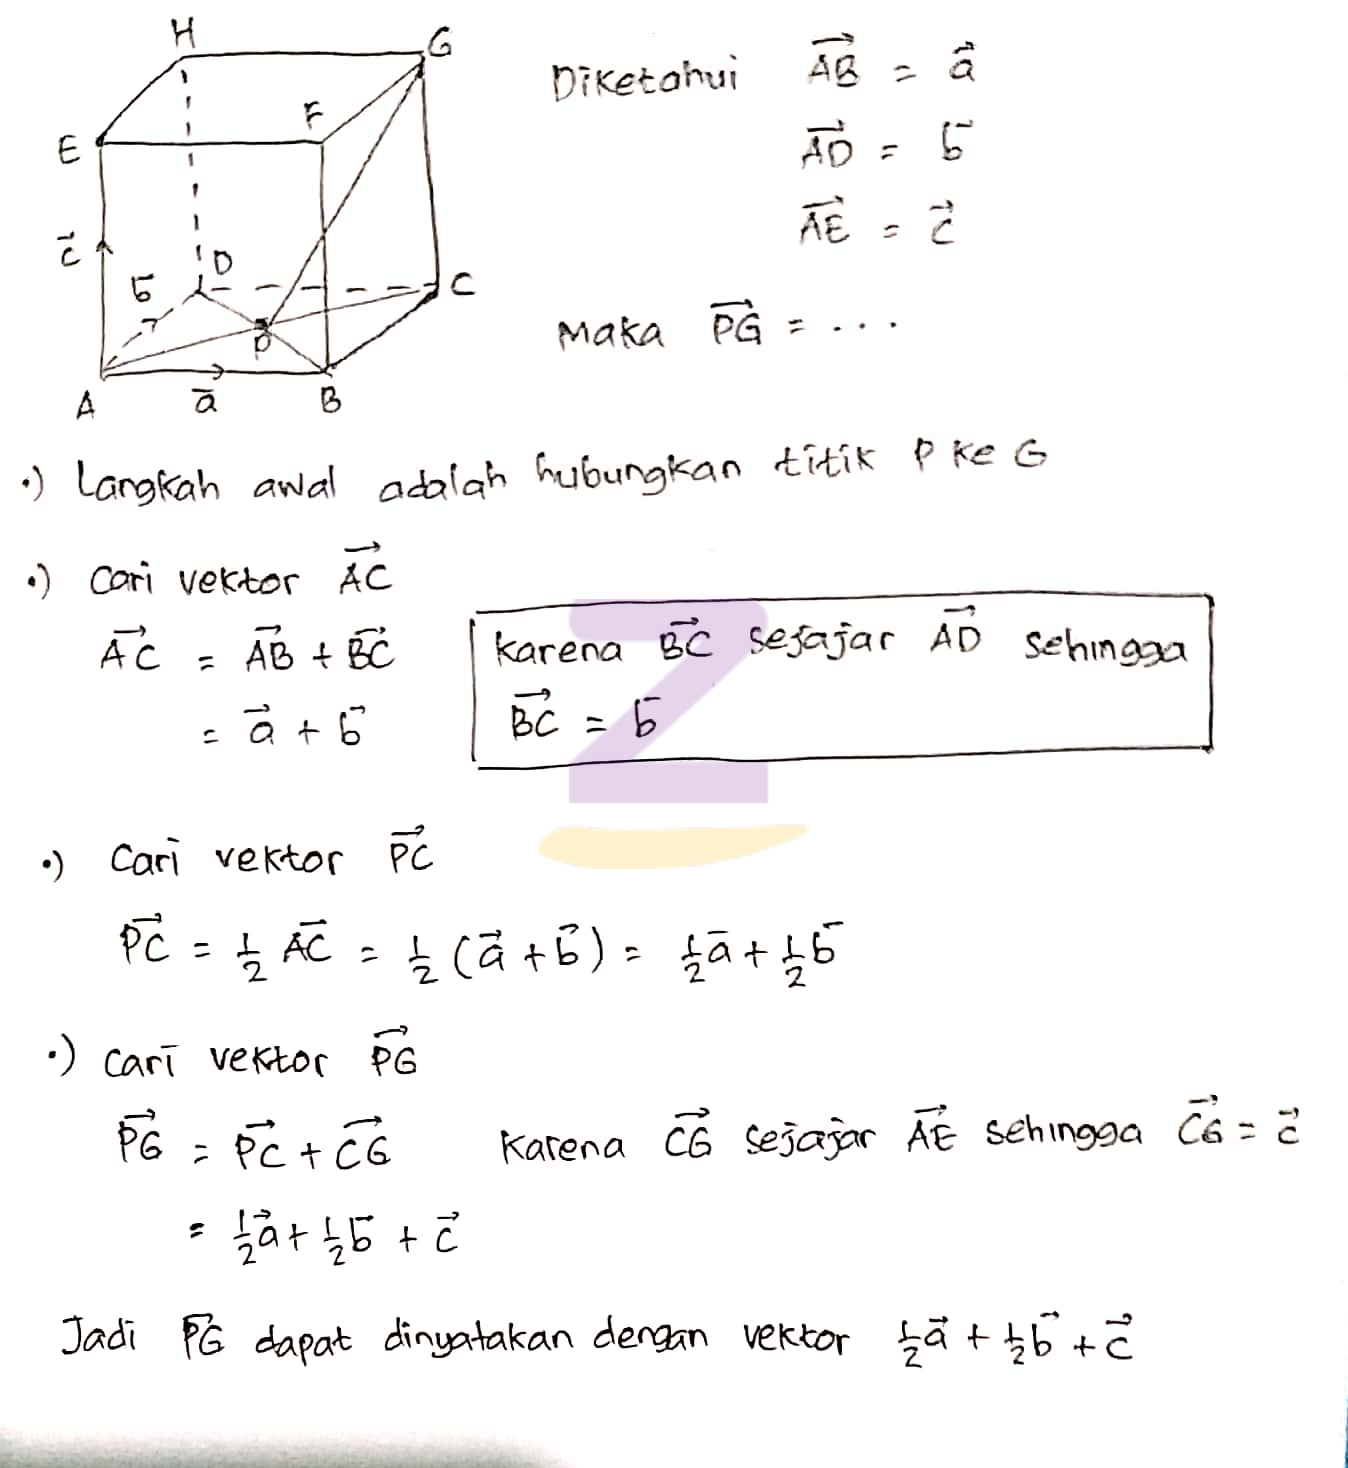 H
G
E
F
c⃗
b̄
D
C
P
A
ā
B
Diketahui AB⃗ = a⃗
AD⃗ = b⃗
AE⃗ = c⃗
Maka PG⃗ = ....
•) Langkah awal adalah hubungkan titik P ke G
•) Cari vektor AC⃗
AC⃗ = AB⃗ + BC⃗
= a⃗ + b⃗
karena BC⃗ sejajar AD⃗ sehingga
BC⃗ = b⃗
•) Cari vektor PC⃗
PC⃗ = 1/2 AC⃗ = 1/2 (a⃗ + b⃗) = 1/2 ā + 1/2 b̄
•) Cari vektor PG⃗
PG⃗ = PC⃗ + CG⃗ Karena CG⃗ sejajar AE⃗ sehingga CG⃗ = c⃗
= 1/2 a⃗ + 1/2 b̄ + c⃗
Jadi PG⃗ dapat dinyatakan dengan vektor 1/2 a⃗ + 1/2 b⃗ + c⃗
Z